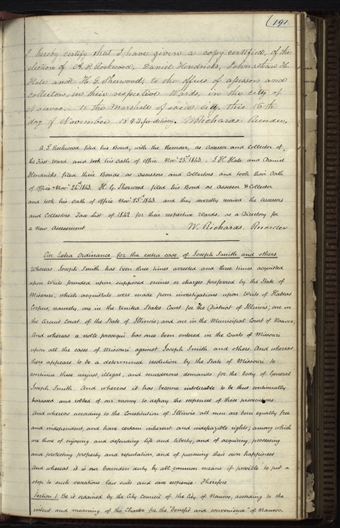 (191
I hereby certify that I have given a copy certified, of the
election of A. S. Rockwood, Daniel Hendricks, Johnathan H.
Hale and H. G. Sherwood, to the offices of assessors and
collectors, in their respective Wards, in the city of
Nauvoo. To the Marshall of said city, this 16th
day of November 1843. W. Richards. Recorder.
filed his Bond, with the Recorder, as Assessor and Collector of
the first Ward and took his oath of office Nov. 23d 1843. J. H. Hale and Daniel
Hendricks filed their Bonds as Assessors and Collectors and took their Oath
of Office Nov. 1843. H. G. Sherwood filed his Bond as Assessor & Collector
and took his oath of Office Nov. 25th 1843. and they severally received the Assessors
and Collectors Tax list of 1842 for their respective Wards, as a Directory for
a New Assessment W. Richards, Recorder
An Extra Ordinance for the extra case of Joseph Smith and others
Whereas Joseph Smith has been three times arrested and three times acquitted
upon Writs founded upon supposed crimes or charges preferred by the State of
Missouri, which acquittals were made from investigations upon Writs of Habeas
Corpus, namely, one in the United States Court for the District of Illinois; one in
the Circuit Court of the State of Illinois; and one in the Municipal Court of Nauvoo.
And whereas a nolle prosequi has once been entered in the Courts of Missouri
upon all the cases of Missouri against Joseph Smith and others. And whereas
there appears to be a determined resolution by the State of Missouri to
continue these unjust, illegal, and murderous demands for the body of General
Joseph Smith. And whereas it has become intolerable to be thus continually
harassed and robbed of our money to defray the expenses of these prosecutions.
And whereas according to the Constitution of Illinois "all men are born equally free
and independent, and have certain inherent and indefeasible rights; among which
are those of enjoying and defending life and liberty, and of acquiring, possessing
and protecting property and reputation, and of pursuing their own happiness
And whereas it is our bounden duty by all common means if possible to put a
stop to such vexatious law suits and save expense. Therefore
Section 1. Be it ordained by the City Council of the City of Nauvoo, according to the
intent and meaning of the Charter for the "benefit and convenience" of Nauvoo.